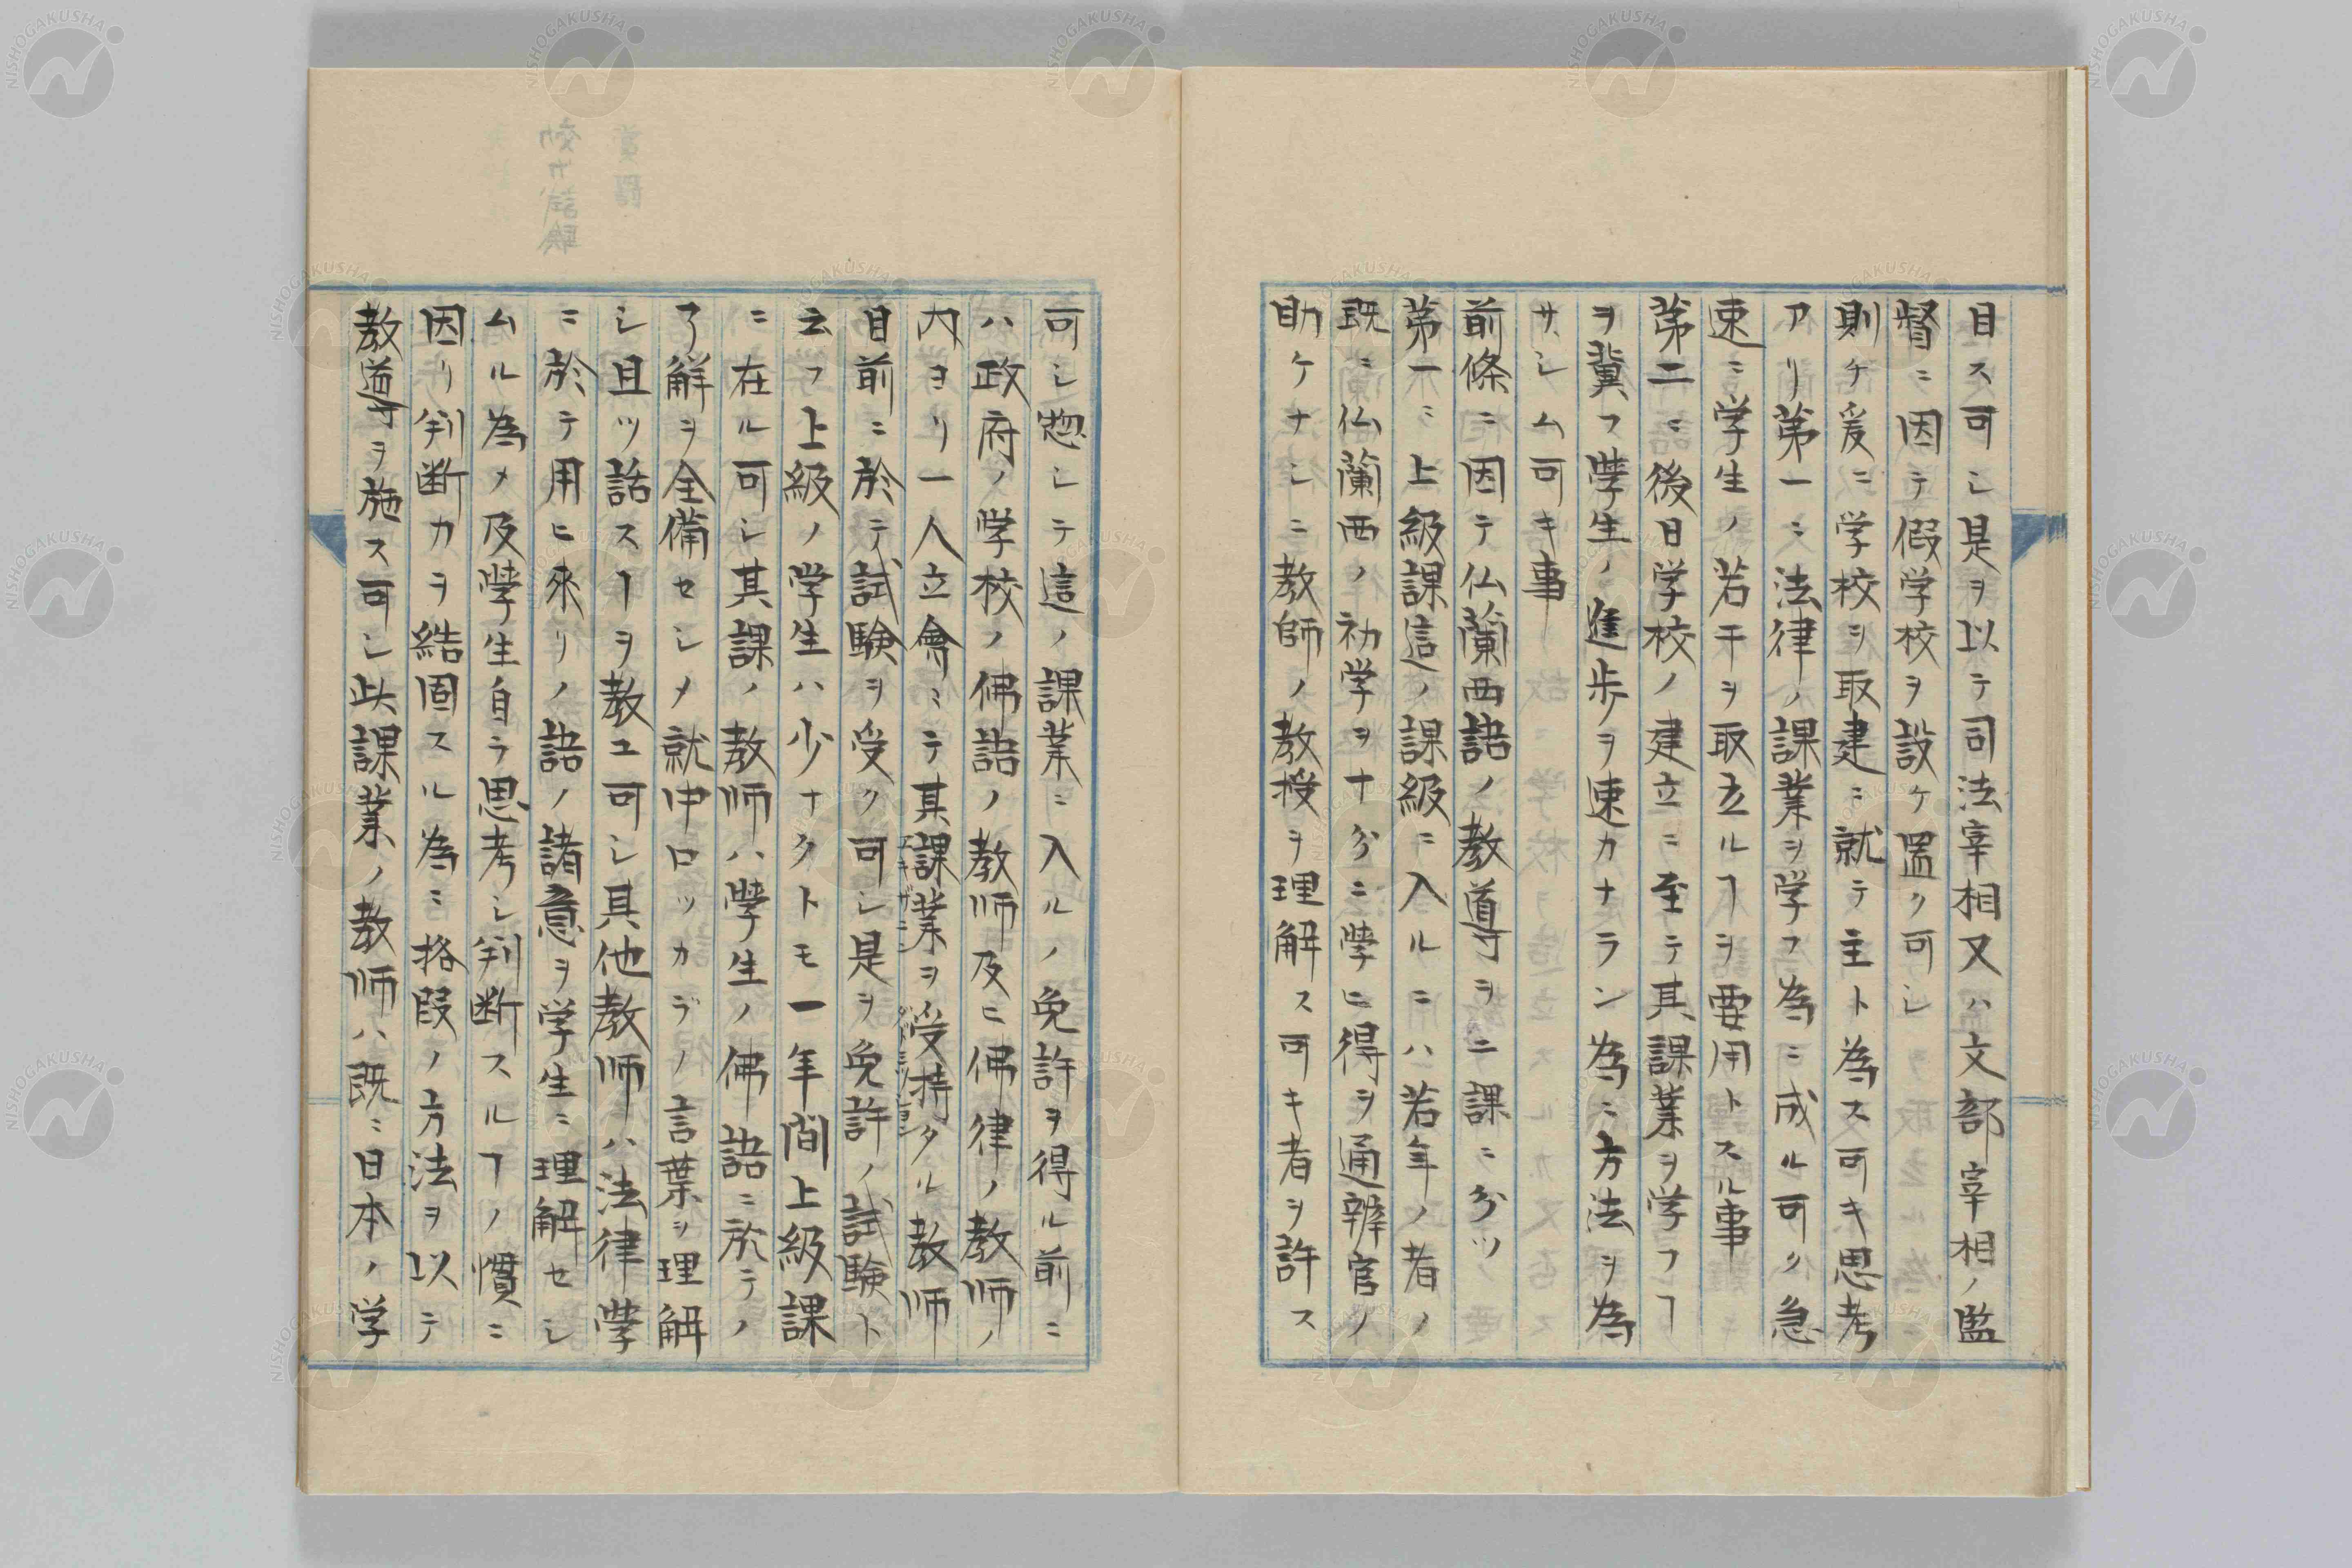 目ス可シ是ヲ以テ司法宰相又ハ文部宰相ノ監
督ニ因テ假学校ヲ設ケ置ク可シ
則チ爰ニ学校ヲ取建ニ就テ主ト為ス可キ思考
アリ第一ニ法律ノ課業ヲ学フ為ニ成ル可ク急
速ニ学生ノ若干ヲ取立ルヿヲ要用トスル事
第二ニ後日学校ノ建立ニ至テ其課業ヲ学フヿ
ヲ冀フ學生ノ進歩ヲ速カナラン為ニ方法ヲ為
サシム可キ事
前條ニ因テ仏蘭西語ノ教導ヲ二課ニ分ツ
第一ニ上級課這ノ課級ニ入ルニハ若年ノ者ノ
既ニ仏蘭西ノ初学ヲ十分ニ學ヒ得ヲ通辨官ノ
助ケナシニ教師ノ教授ヲ理解ス可キ者ヲ許ス
可シ惣シテ這ノ課業ニ入ルノ免許ヲ得ル前ニ
ハ政府ノ学校ノ佛語ノ教师及ヒ佛律ノ教师ノ
内ヨリ一人立會ニテ其課業ヲ受持タル教师
目前ニ於テ試験ヲ受ク可シ是ヲ免許ノ試験ト
云フ上級ノ学生ハ少ナクトモ一年間上級課
ニ在ル可シ其課ノ教师ハ學生ノ佛語ニ於テノ
了解ヲ全備セシメ就中ロツカデノ言葉ヲ理解
シ且ツ話スヿヲ教ユ可シ其他教师ハ法律學
ニ於テ用ヒ來リノ語ノ諸意ヲ学生ニ理解セシ
ムル為メ及學生自ラ思考シ判断スルヿノ慣ニ
因リ判断力ヲ結固スル為ニ格段ノ方法ヲ以テ
教導ヲ施ス可シ此課業ノ教师ハ既ニ日本ノ学